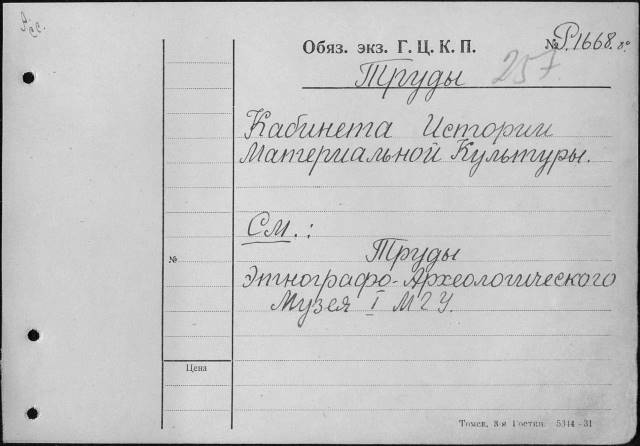 Рсс.
Обяз. экз. Г. Ц. К. П. № Р.1668. 8°
Труды 257.
Кабинета Истории
Материальной Культуры.
См.:
Труды
№
Этнографо-Археологического
Музея I МГУ.
Цена
Томск, 3-я Гостип. 5344-31